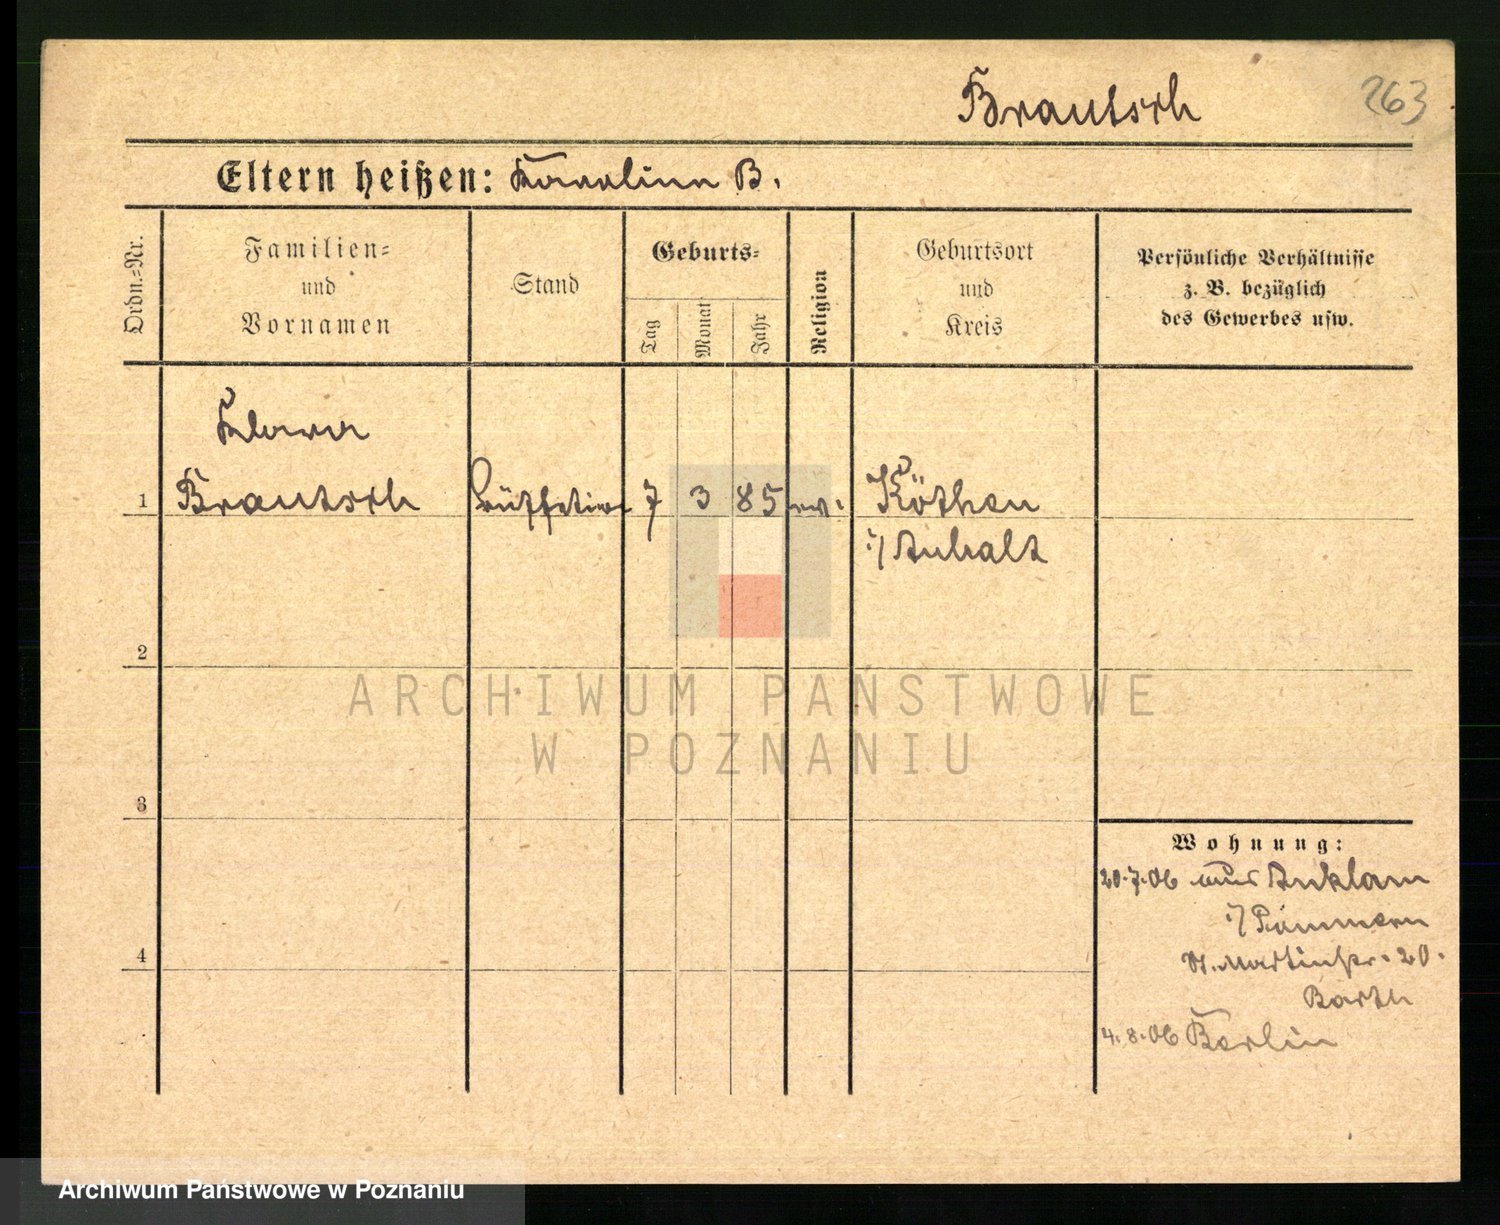 Brautsch 263
Eltern heißen: Karoline B.
Ordn.=Nr.
Familien=
und
Vornamen
Stand
Geburts=
Tag
Monat
Jahr
Religion
Geburtsort
und
Kreis
Persönliche Verhältnisse
z. B. bezüglich
des Gewerbes usw.
Klara
1 Brautsch Büffetiere 7 3 85 ev. Köthen
i/ Anhalt
2
3
4
Wohnung:
20.7.06 aus Anklam
i/ Pommern
St. Martinstr. 20.
Barth
4.8.06 Berlin
ARCHIWUM PAŃSTWOWE
W POZNANIU
Archiwum Państwowe w Poznaniu